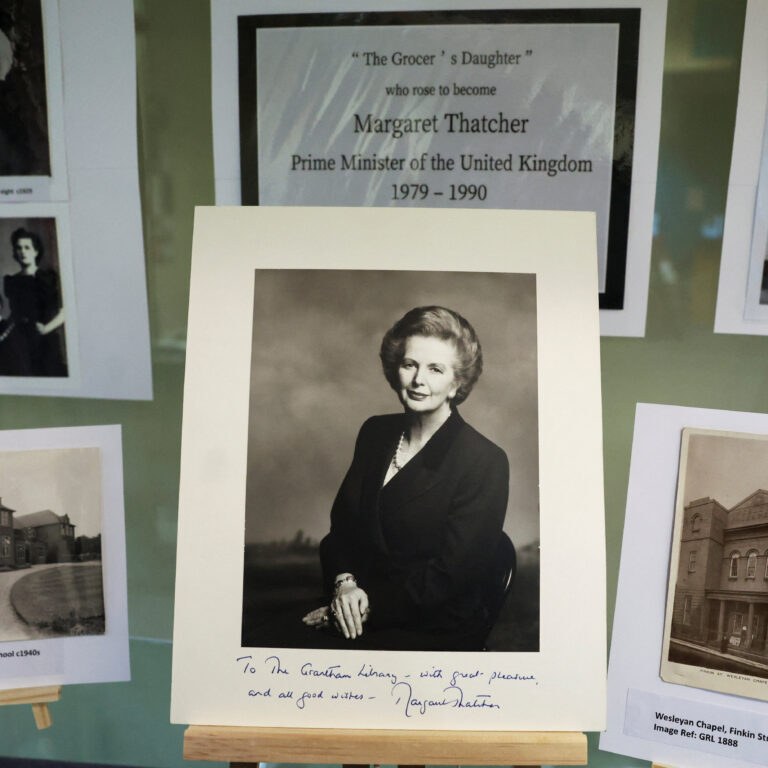 “ The Grocer ’ s Daughter ”
who rose to become
Margaret Thatcher
Prime Minister of the United Kingdom
1979 – 1990
c1925
To The Grantham Library – with great pleasure,
and all good wishes – Margaret Thatcher
c1940s
FINKIN ST. WESLEYAN CHAPEL
Wesleyan Chapel, Finkin
Image Ref: GRL 1888